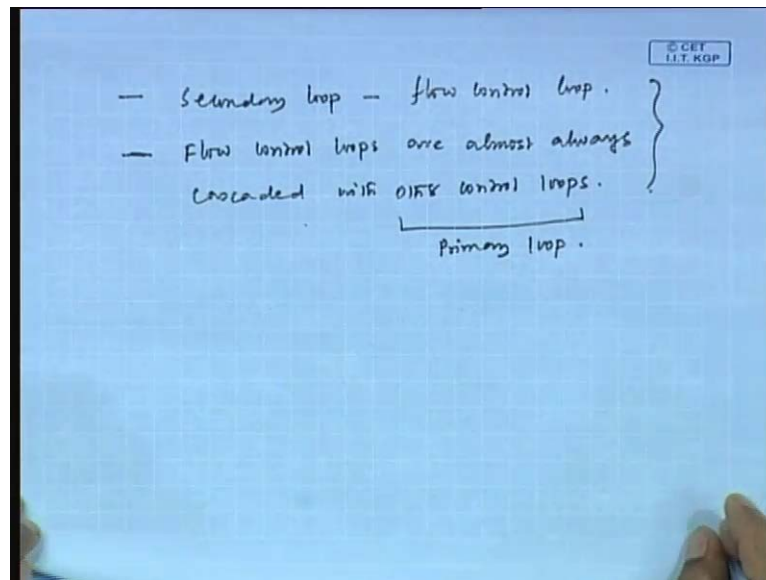 © CET
I.I.T. KGP
— Secondary loop – flow control loop.
— Flow control loops are almost always
cascaded with other control loops.
Primary loop.